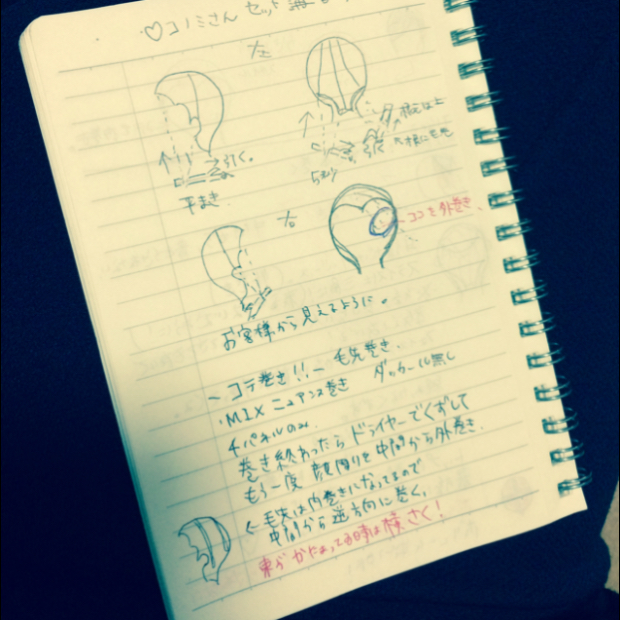 ♡コノミさん セット
左
引く。
平まき
根元は上
右
ココを外巻き、
お客様から見えるように。
ーコテ巻き!!ー 毛先巻き、
・MIX ニュアンス巻き ダッカール無し
4パネルのみ
巻き終わったらドライヤーでくずして
もう一度 顔周りを中間から外巻き、
←毛先は内巻きになってるので
中間から逆方向に巻く。
束が 時は横さく!